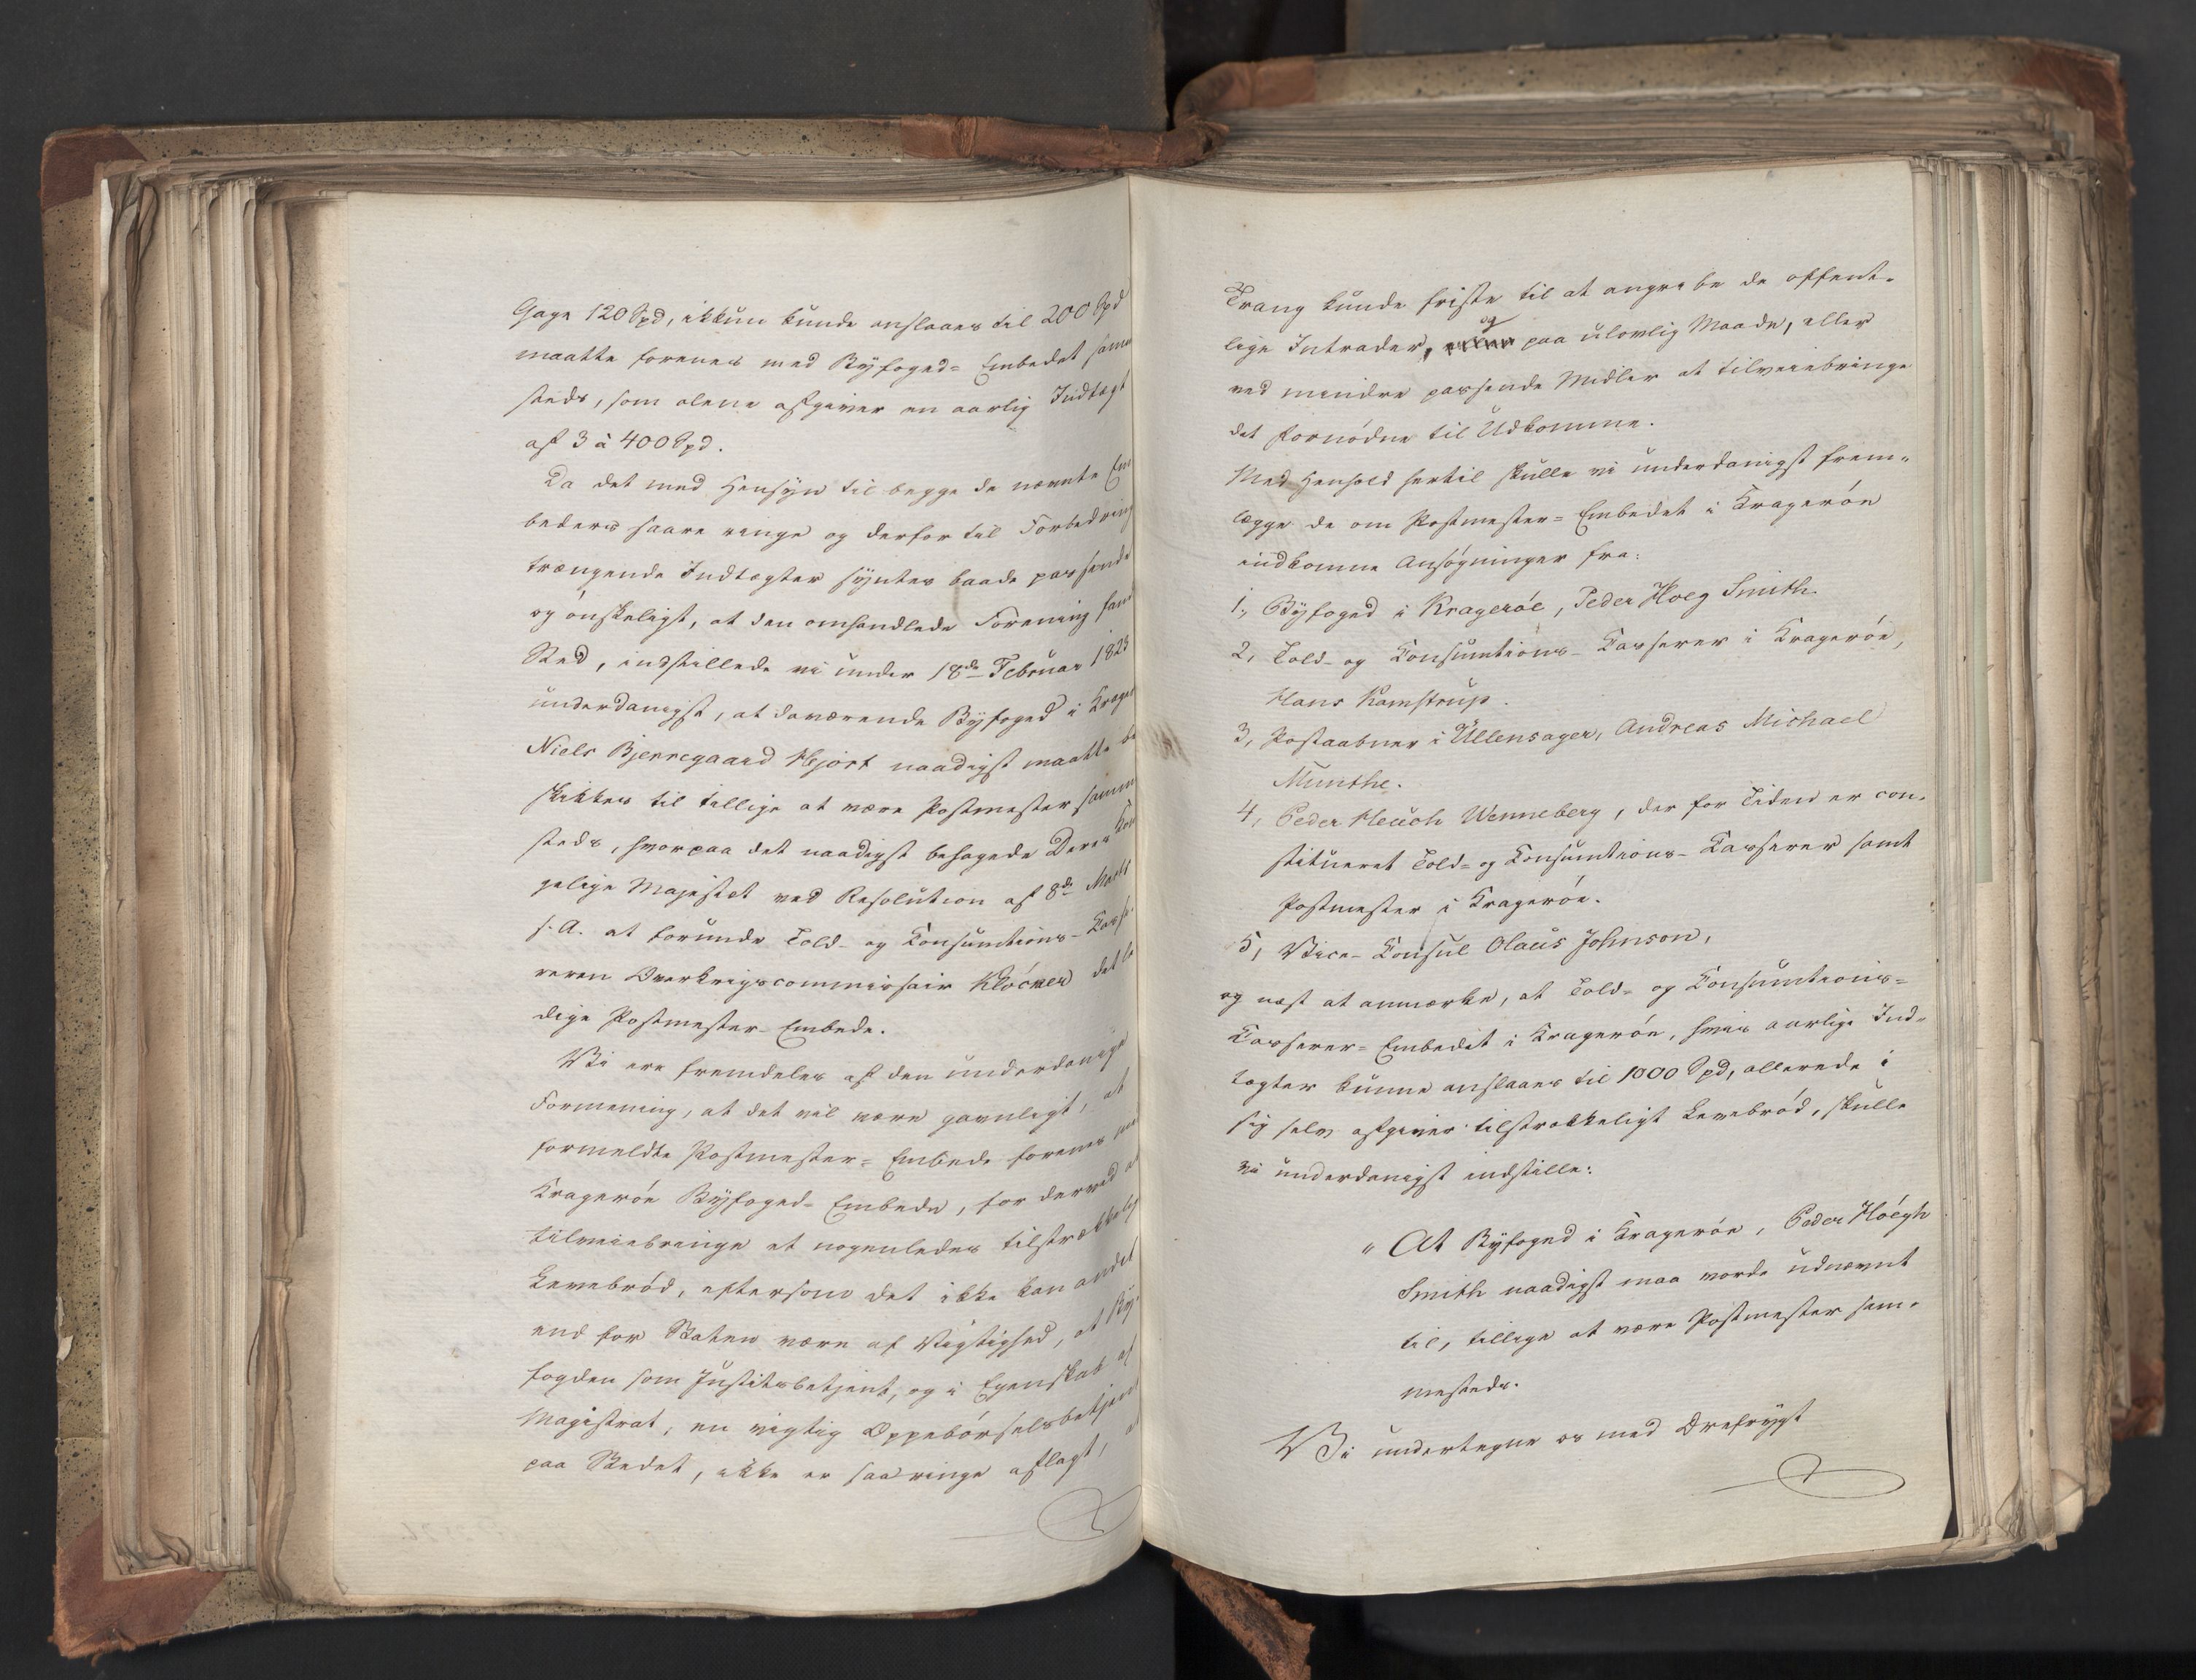 Gage 120 Spd, ikkun kunde anslaaes til 200 Spd
maatte forenes med Byfoged= Embedet samme
steds, som alene afgiver en aarlig Indtægt
af 3 à 400 Spd.
Da det med Hensyn til begge de nævnte Em
beders saare ringe og derfor til Forbedring
trængende Indtægter syntes baade passende
og ønskeligt, at den omhandlede Forening fandt
Sted, indstillede vi under 18de Februar 1823
underdanigst, at daværende Byfoged i Kragerøe
Niels Bjerregaard Hjort naadigst maatte be
skikkes til tillige at være Postmester samme
steds, hvorpaa det naadigst behagede Deres Kon
gelige Majestæt ved Resolution af 8de Marts
s. A. at forunde Told- og Consumtions-Casse
reren Overkrigscommissair Kløcker det le
dige Postmester-Embede.
Vi ere fremdeles af den underdanige
Formening, at det vil være gavnligt, at
formeldte Postmester= Embede forenes med
Kragerøe Byfoged- Embede, for derved at
tilveiebringe et nogenledes tilstrækkeligt
Levebrød, eftersom det ikke kan andet
end for Staten være af Vigtighed, at By-
fogden som Justitsbetjent, og i Egenskab af
Magistrat, en vigtig Oppebørselsbetjent
paa Stedet, ikke er saa ringe aflagt, at
Trang kunde friste til at angribe de offent-
lige Intrader, og paa ulovlig Maade, eller
ved mindre passende Midler at tilveiebringe
det fornødne til Udkomme.
Med Henhold hertil skulle vi underdanigst frem-
lægge de om Postmester= Embedet i Kragerøe
indkomne Ansøgninger fra:
1, Byfoged i Kragerøe, Peder Høeg Smith.
2, Told- og Consumtions- Casserer i Kragerøe,
Hans Kamstrup.
3, Postaabner i Ullensager, Andreas Michael
Munthe.
4, Peder Heuch Wenneberg, der for Tiden er con-
stitueret Told- og Consumtions- Casserer samt
Postmester i Kragerøe.
5, Vice- Consul Olaus Johnson,
og næst at anmærke, at Told- og Consumtions=
Casserer= Embedet i Kragerøe, hvis aarlige Ind-
tægter kunne anslaaes til 1000 Spd, allerede i
sig selv afgiver tilstrækkeligt Levebrød, skulle
vi underdanigst indstille:
" At Byfoged i Kragerøe, Peder Høegh
Smith naadigst maa vorde udnævnt
til, tillige at være Postmester sam-
mesteds.
Vi undertegne os med Ærefrygt